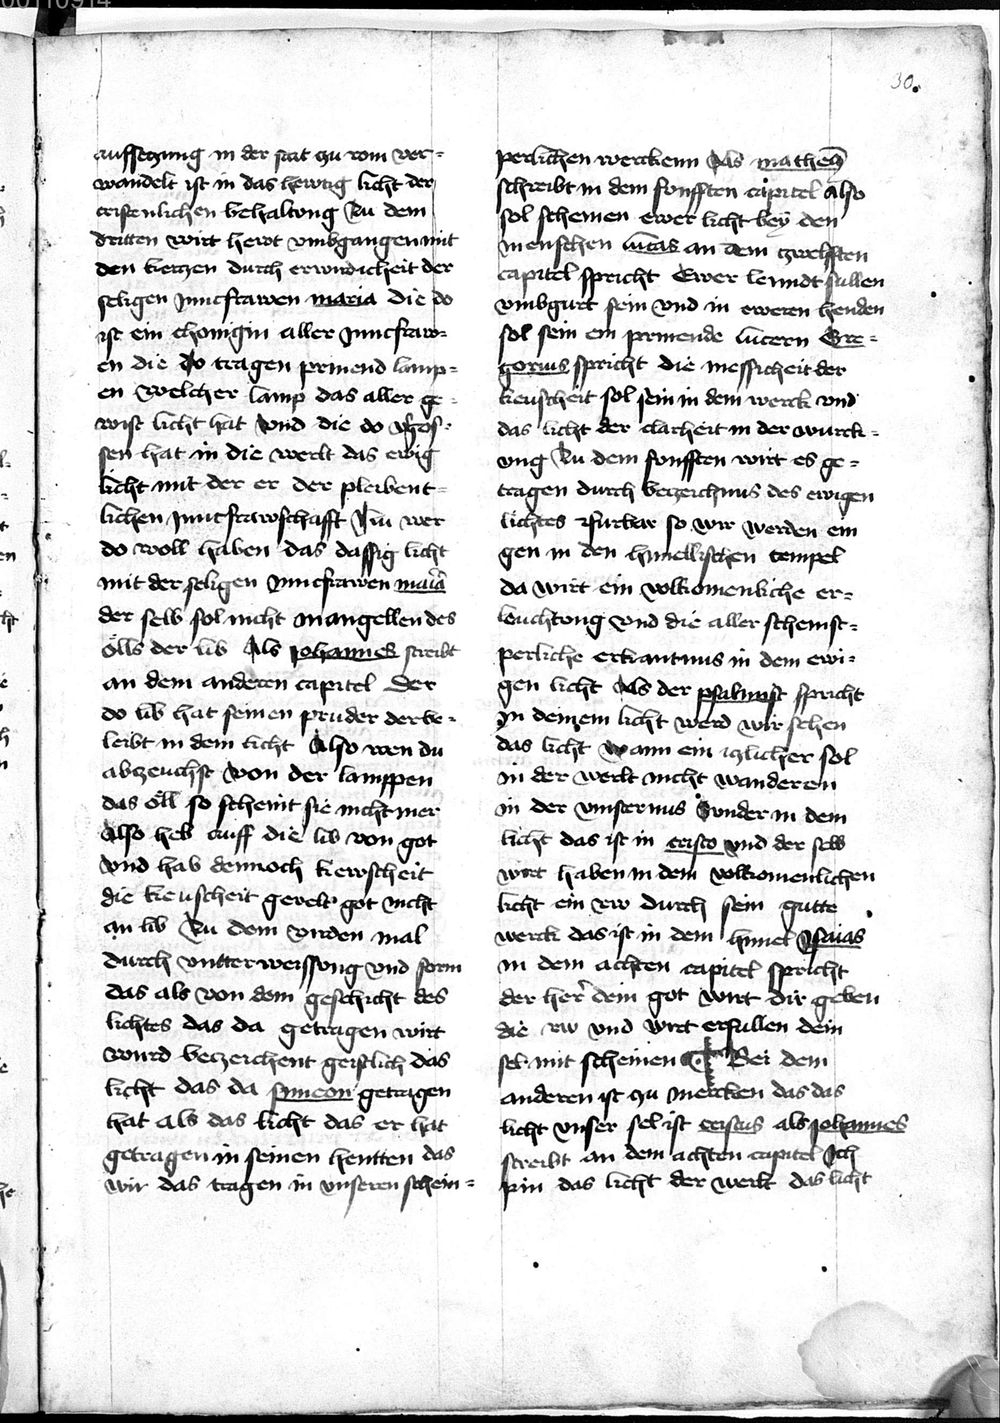 30.
auffsetzung in der stat zu rom ver=
wandelt ist in das hewtig licht der
cristenlichen behaltong Zu dem
dritten wirt hewt vmbgangen mit
den kertzen durch erwirdicheit der
seligen junckfrawen maria die do
ist ein chonigin aller junckfraw=
en die do tragen prinend lamp=
en Welcher lamp das aller ge=
wist licht hat Vnd die do vgos=
sen hat in die werlt das ewig
licht mit der er der pleibent=
lichen junckfrawschafft Nu wer
do woll haben das dassig licht
mit der seligen junckfrawen maria
der selb sol nicht mangellen des
ölls der lib Als johannes screibt
an dem anderen capitel Der
do lib hat seinen pruder der be=
leibt in dem licht Also wen du
abzeuchst von der lamppen
das öll so scheint sie nicht mer
Also heb auff die lib von got
vnd hab dennoch kewscheit
die keuscheit gevelt got nicht
an lib Zu dem virden mal
durch vntterweissung vnd form
das als von dem geschicht des
lichtes das da getragen wirt
wurd bezeichent geistlich das
licht das da simeon getragen
hat als das licht das er hat
getragen in seinen hentten das
wir das tragen in vnseren schein=
perlichen werckenn Als matheus
schreibt in dem funfften capitel Also
sol scheinen ewer licht bey den
menschen lucas an dem zwelfften
capitel spricht Ewer lenndt sullen
vmbgurt sein vnd in eweren henden
sol sein ein prinnende lucern Gre=
gorius spricht die messicheit der
keuscheit sol sein in dem werck vnd
das licht der clarheit in der wurck=
ung Zu dem funfften wirt es ge=
tragen durch bezeichnus des ewigen
lichtes furbar so wir werden ein
gen in den himellischen tempel
da wirt ein volkomenliche er=
leuchtong vnd die aller scheinst=
perliche erkantnus in dem ewi=
gen licht Als der psalmist spricht
In deinem licht werd wir sehen
das licht wann ein izlicher sol
in der werlt nicht wanderen
in der vinsternus Sonder in dem
licht das ist in cristo vnd der selb
wirt haben in dem volkomenlichen
licht ein rw durch sein gutte
werck das ist in dem himel Ysaias
in dem achten capitel spricht
der her dein got wirt dir geben
die rw vnd wirt erfullen dein
sel mit scheinen Bei dem
anderen ist zu mercken das das
licht vnser sel ist cristus als johannes
screibt an dem achten capitel Ich
pin das licht der werlt das licht